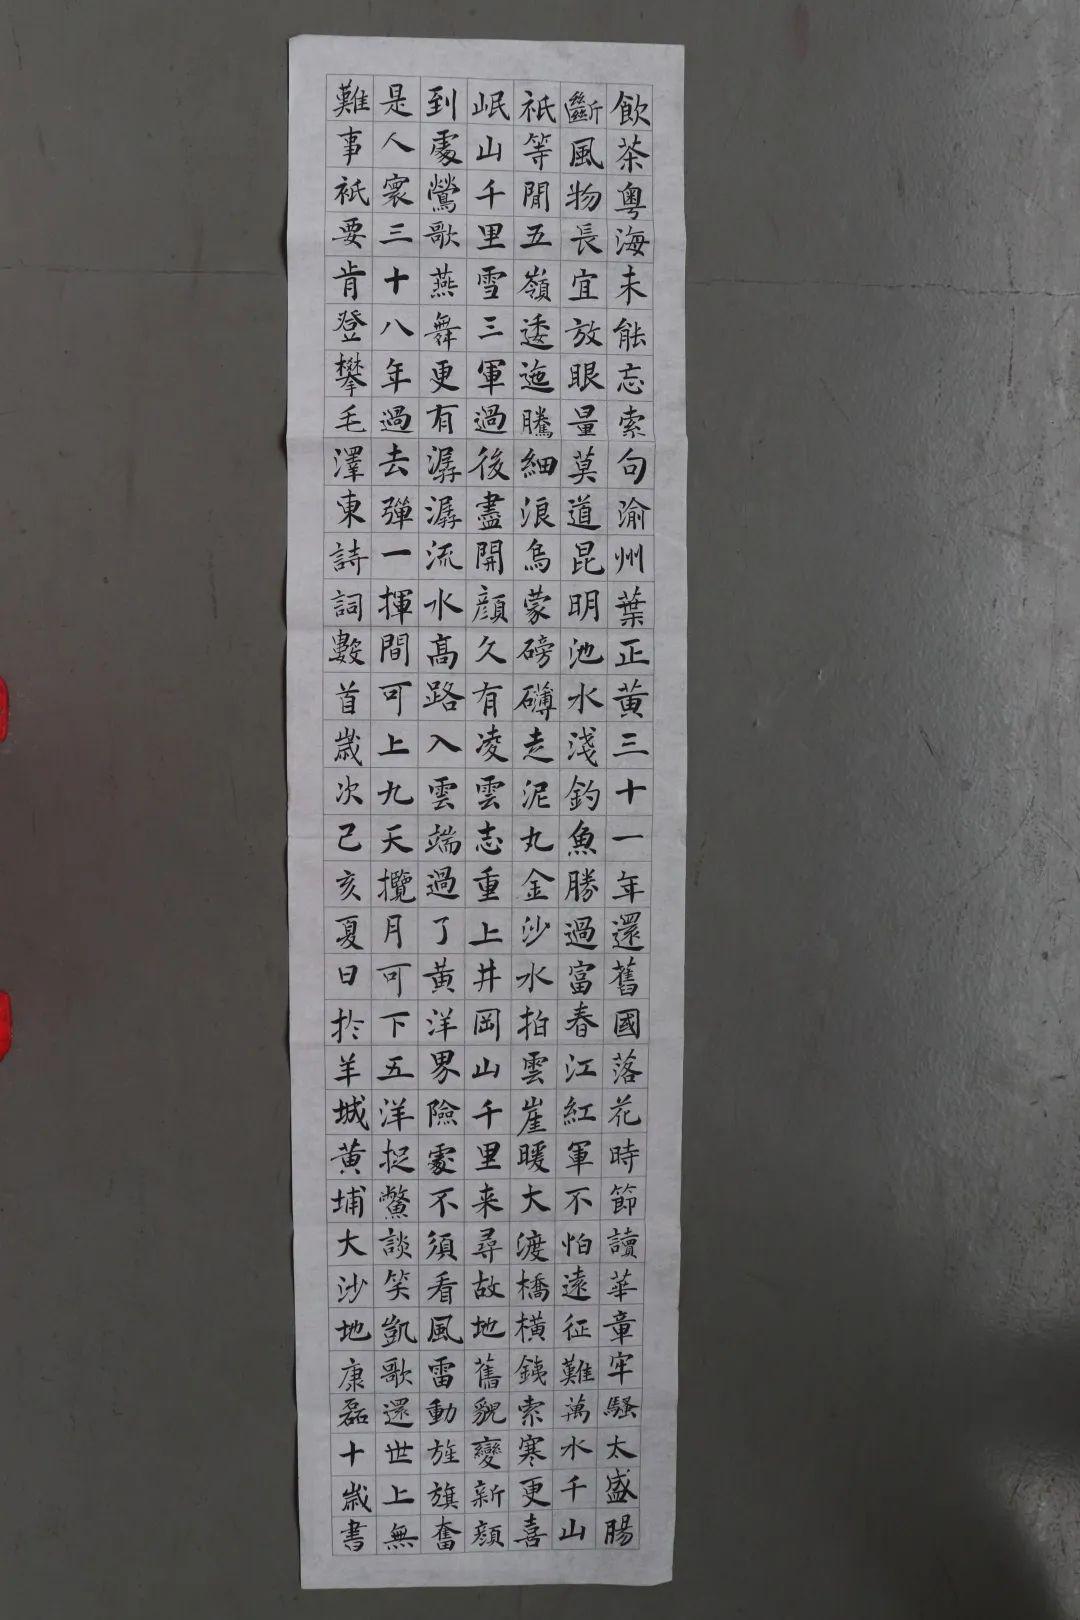 飲茶粤海未能忘索句渝州葉正黃三十一年還舊國落花時節讀華章牢騷太盛腸
斷風物長宜放眼量莫道昆明池水淺釣魚勝過富春江紅軍不怕遠征難萬水千山
祇等閒五嶺逶迤騰細浪烏蒙磅礴走泥丸金沙水拍雲崖暖大渡橋橫鐵索寒更喜
岷山千里雪三軍過後盡開顏久有凌雲志重上井岡山千里来尋故地舊貌變新顏
到處鶯歌燕舞更有潺潺流水高路入雲端過了黃洋界險處不須看風雷動旌旗奮
是人寰三十八年過去彈一揮間可上九天攬月可下五洋捉鱉談笑凱歌還世上無
難事祇要肯登攀毛澤東詩詞數首歲次己亥夏日於羊城黃埔大沙地康磊十歲書